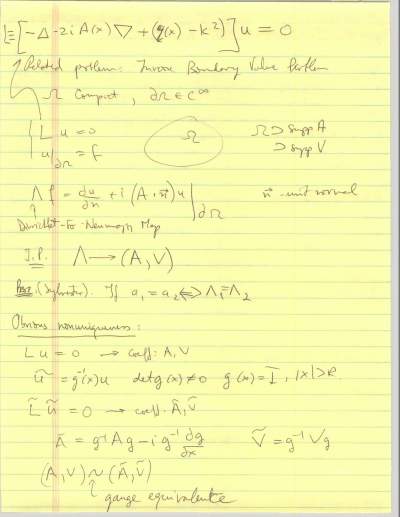 L ≡ [-Δ - 2i A(x) ∇ + (q(x) - k²)] u = 0
Related problem: Inverse Boundary Value Problem
Ω Compact, ∂Ω ∈ C^∞
L u = 0
u|∂Ω = f
Ω
Ω ⊃ supp A
⊃ supp V
Λ f = ∂u/∂n + i (A · n⃗) u |∂Ω
n⃗ - unit normal
Dirichlet-to-Neumann Map
I.P. Λ → (A, V)
(Sylvester). If a₁ = a₂ ⟺ Λ₁ = Λ₂
Obvious nonuniqueness:
L u = 0 → coeff. A, V
ũ = g⁻¹(x) u det g(x) ≠ 0 g(x) = I, |x| > R.
L̃ ũ = 0 → coeff. Ã, Ṽ
Ã = g⁻¹ A g - i g⁻¹ ∂g/∂x Ṽ = g⁻¹ V g
(A, V) ~ (Ã, Ṽ)
gauge equivalence